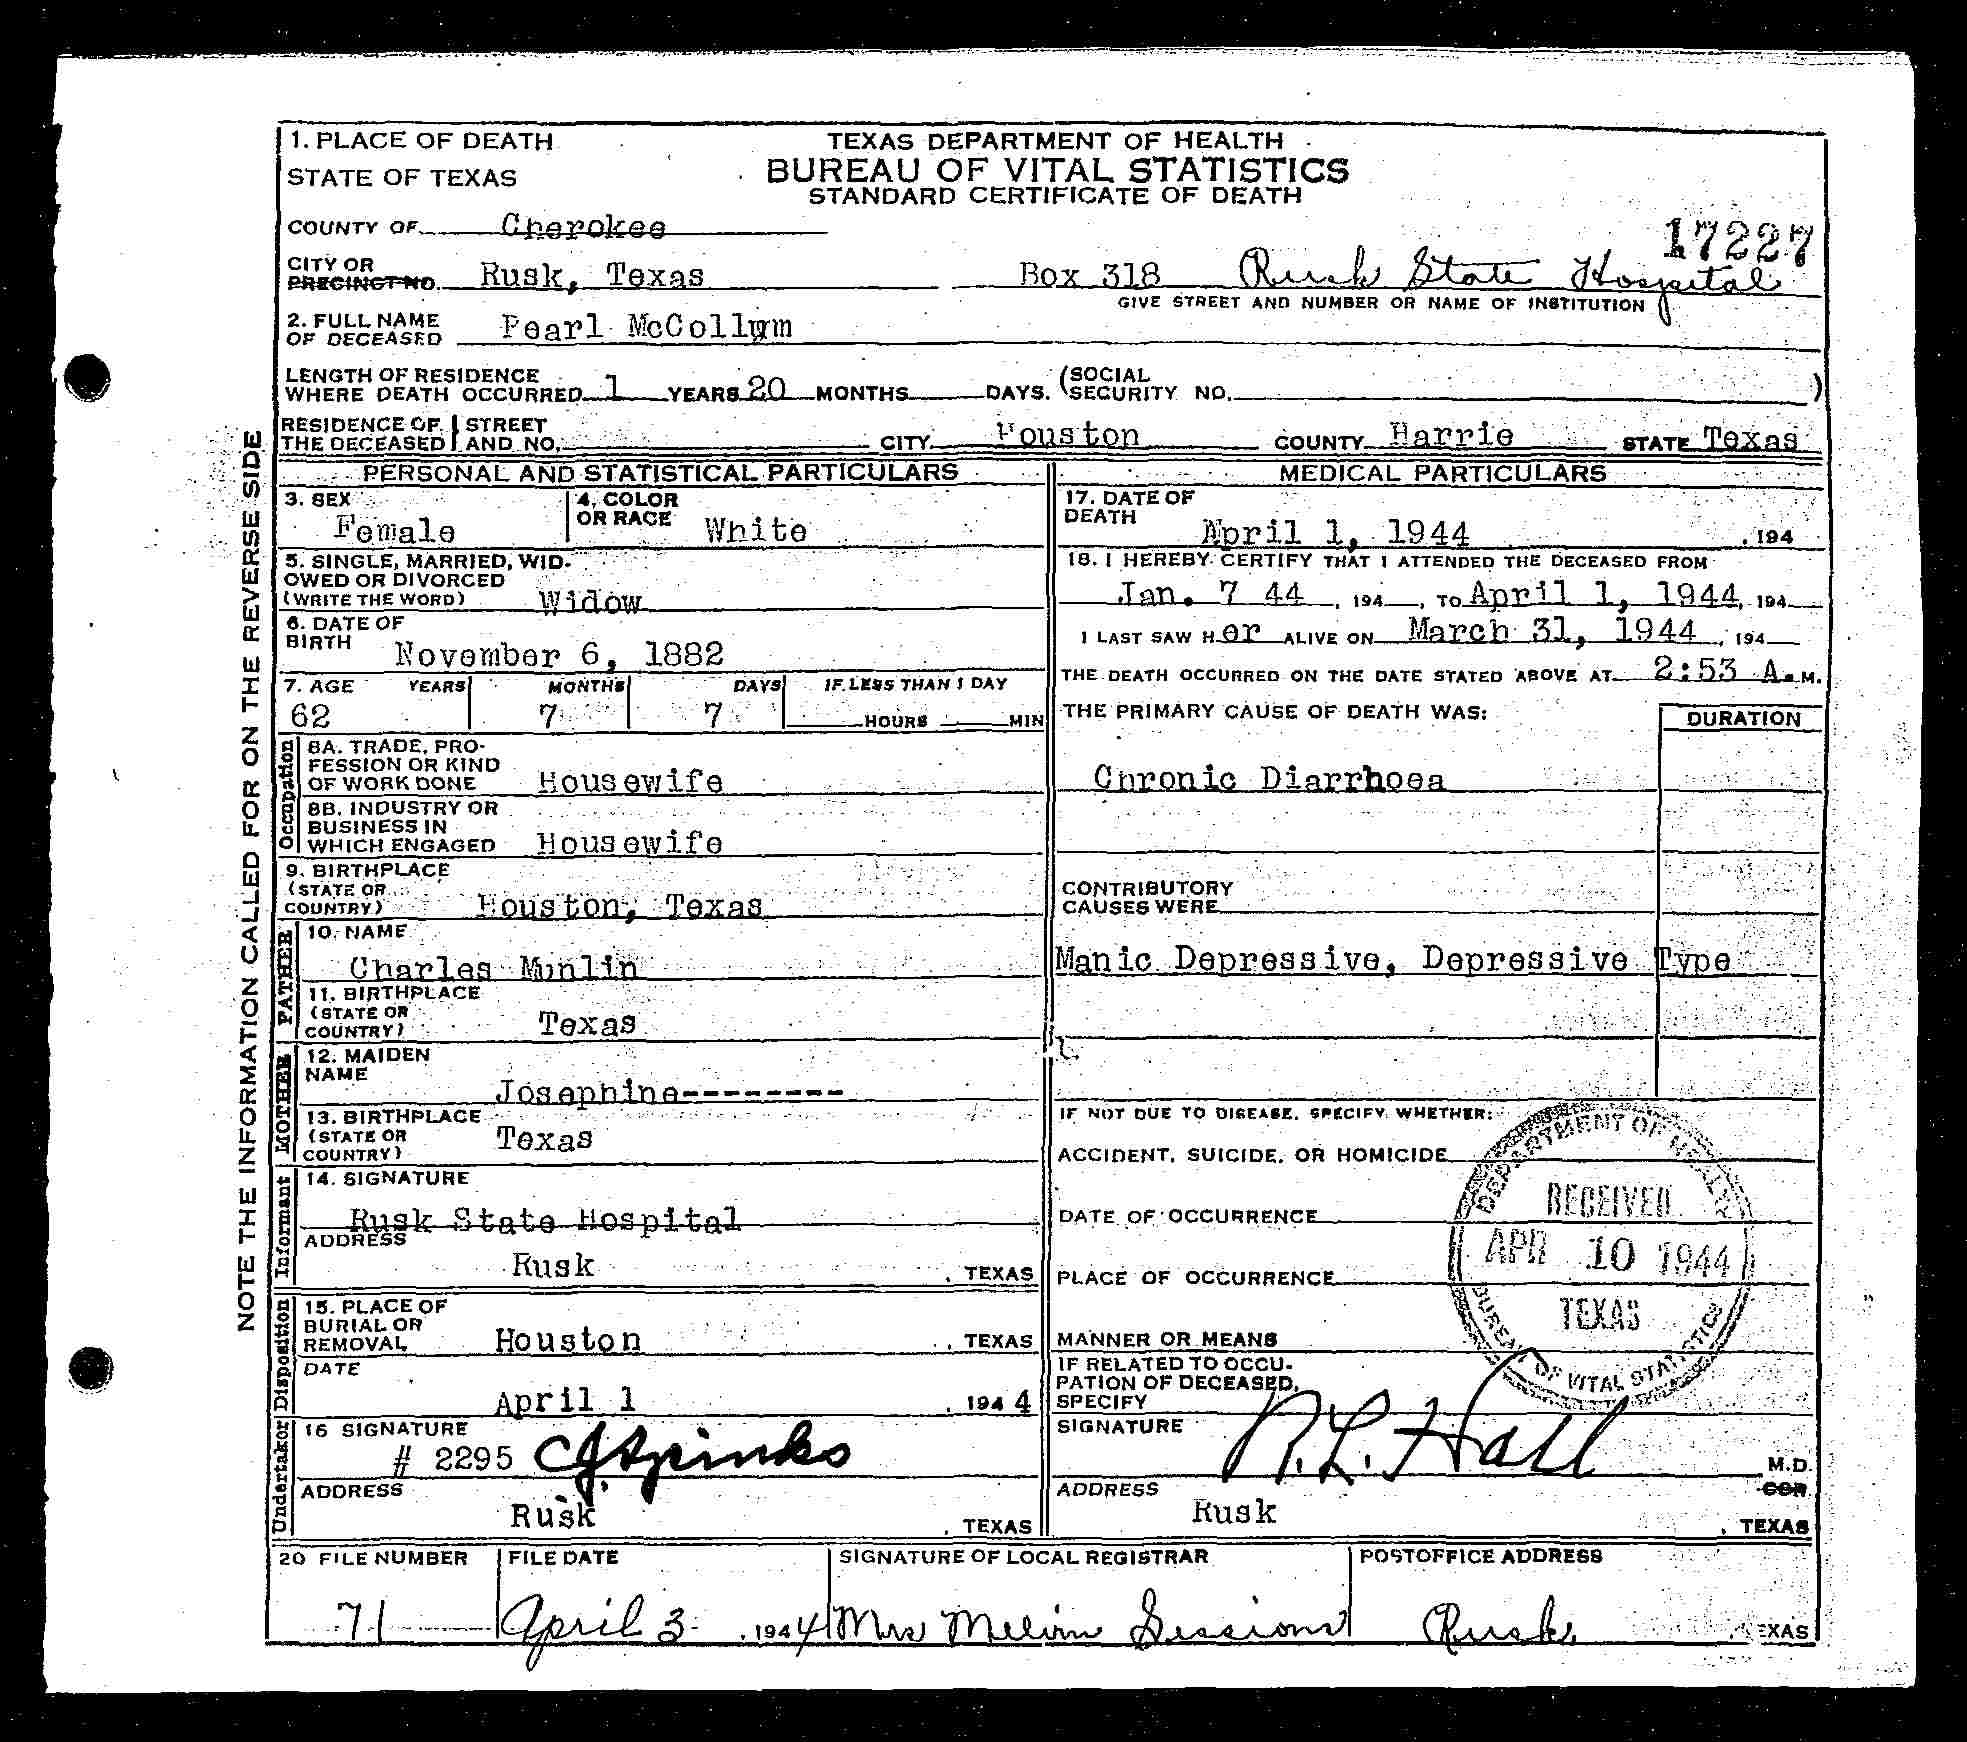 1. PLACE OF DEATH
STATE OF TEXAS
TEXAS DEPARTMENT OF HEALTH
BUREAU OF VITAL STATISTICS
STANDARD CERTIFICATE OF DEATH
17227
COUNTY OF Cherokee
CITY OR PRECINCT NO. Rusk, Texas Box 318 Rusk State Hospital
GIVE STREET AND NUMBER OR NAME OF INSTITUTION
2. FULL NAME OF DECEASED Pearl McCollum
LENGTH OF RESIDENCE WHERE DEATH OCCURRED 1 YEARS 20 MONTHS DAYS. (SOCIAL SECURITY NO. )
RESIDENCE OF THE DECEASED STREET AND NO. CITY Houston COUNTY Harris STATE Texas
PERSONAL AND STATISTICAL PARTICULARS
3. SEX Female
4. COLOR OR RACE White
5. SINGLE, MARRIED, WID-
OWED OR DIVORCED
(WRITE THE WORD) Widow
6. DATE OF BIRTH November 6, 1882
7. AGE YEARS MONTHS DAYS IF LESS THAN 1 DAY
62 7 7 HOURS MIN
Occupation
8A. TRADE, PRO-
FESSION OR KIND
OF WORK DONE Housewife
8B. INDUSTRY OR
BUSINESS IN
WHICH ENGAGED Housewife
9. BIRTHPLACE
(STATE OR
COUNTRY) Houston, Texas
FATHER
10. NAME
Charles Munlin
11. BIRTHPLACE
(STATE OR
COUNTRY) Texas
MOTHER
12. MAIDEN
NAME Josephine--------
13. BIRTHPLACE
(STATE OR
COUNTRY) Texas
Informant
14. SIGNATURE
Rusk State Hospital
ADDRESS
Rusk , TEXAS
Disposition
15. PLACE OF
BURIAL OR
REMOVAL Houston , TEXAS
DATE
April 1 , 1944
Undertaker
16 SIGNATURE
# 2295 C J Spinks
ADDRESS
Rusk , TEXAS
MEDICAL PARTICULARS
17. DATE OF
DEATH April 1, 1944 , 194
18. I HEREBY CERTIFY THAT I ATTENDED THE DECEASED FROM
Jan. 7 44 , 194 , TO April 1, 1944, 194
I LAST SAW H er ALIVE ON March 31, 1944 , 194
THE DEATH OCCURRED ON THE DATE STATED ABOVE AT 2:53 A. M.
THE PRIMARY CAUSE OF DEATH WAS: DURATION
Chronic Diarrhoea
CONTRIBUTORY
CAUSES WERE
Manic Depressive, Depressive Type
IF NOT DUE TO DISEASE, SPECIFY WHETHER:
ACCIDENT, SUICIDE, OR HOMICIDE
DATE OF OCCURRENCE
PLACE OF OCCURRENCE
MANNER OR MEANS
IF RELATED TO OCCU-
PATION OF DECEASED,
SPECIFY
DEPARTMENT OF HEALTH
RECEIVED
APR 10 1944
TEXAS
BUREAU OF VITAL STATISTICS
SIGNATURE R. L. Hall M.D.
COR.
ADDRESS
Rusk , TEXAS
20 FILE NUMBER FILE DATE SIGNATURE OF LOCAL REGISTRAR POSTOFFICE ADDRESS
71 April 3 , 1944 Mrs Melvin Sessions Rusk , TEXAS
NOTE THE INFORMATION CALLED FOR ON THE REVERSE SIDE